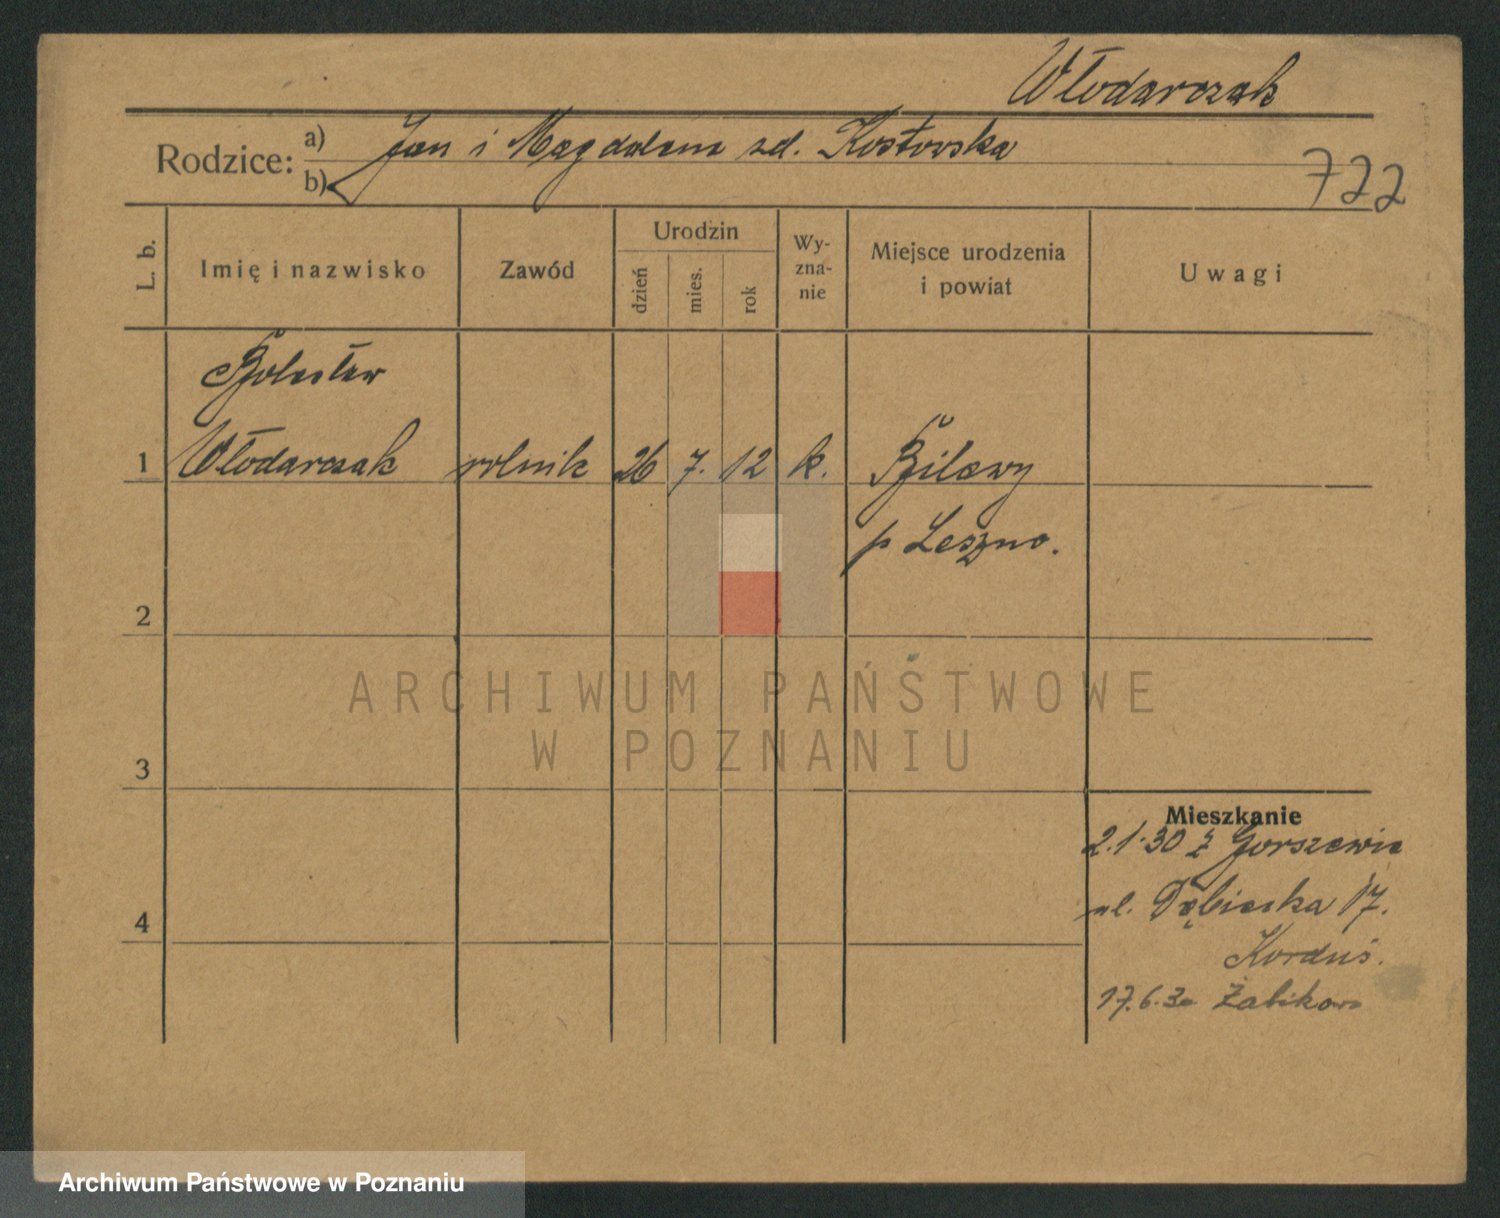 Włodarczak
Rodzice: a) Jan i Magdalena zd. Kostowska
b)
722
L. b.
Imię i nazwisko
Zawód
Urodzin
dzień
mies.
rok
Wy-
zna-
nie
Miejsce urodzenia
i powiat
Uwagi
Bolesław
1 Włodarczak rolnik 26 7. 12 k.
p Leszno.
2
3
4
Mieszkanie
2.1.30 z Gorszewic
ul. Dąbieska 17.
Korduś.
17.6.30 Żabikowo
ARCHIWUM PAŃSTWOWE
W POZNANIU
Archiwum Państwowe w Poznaniu